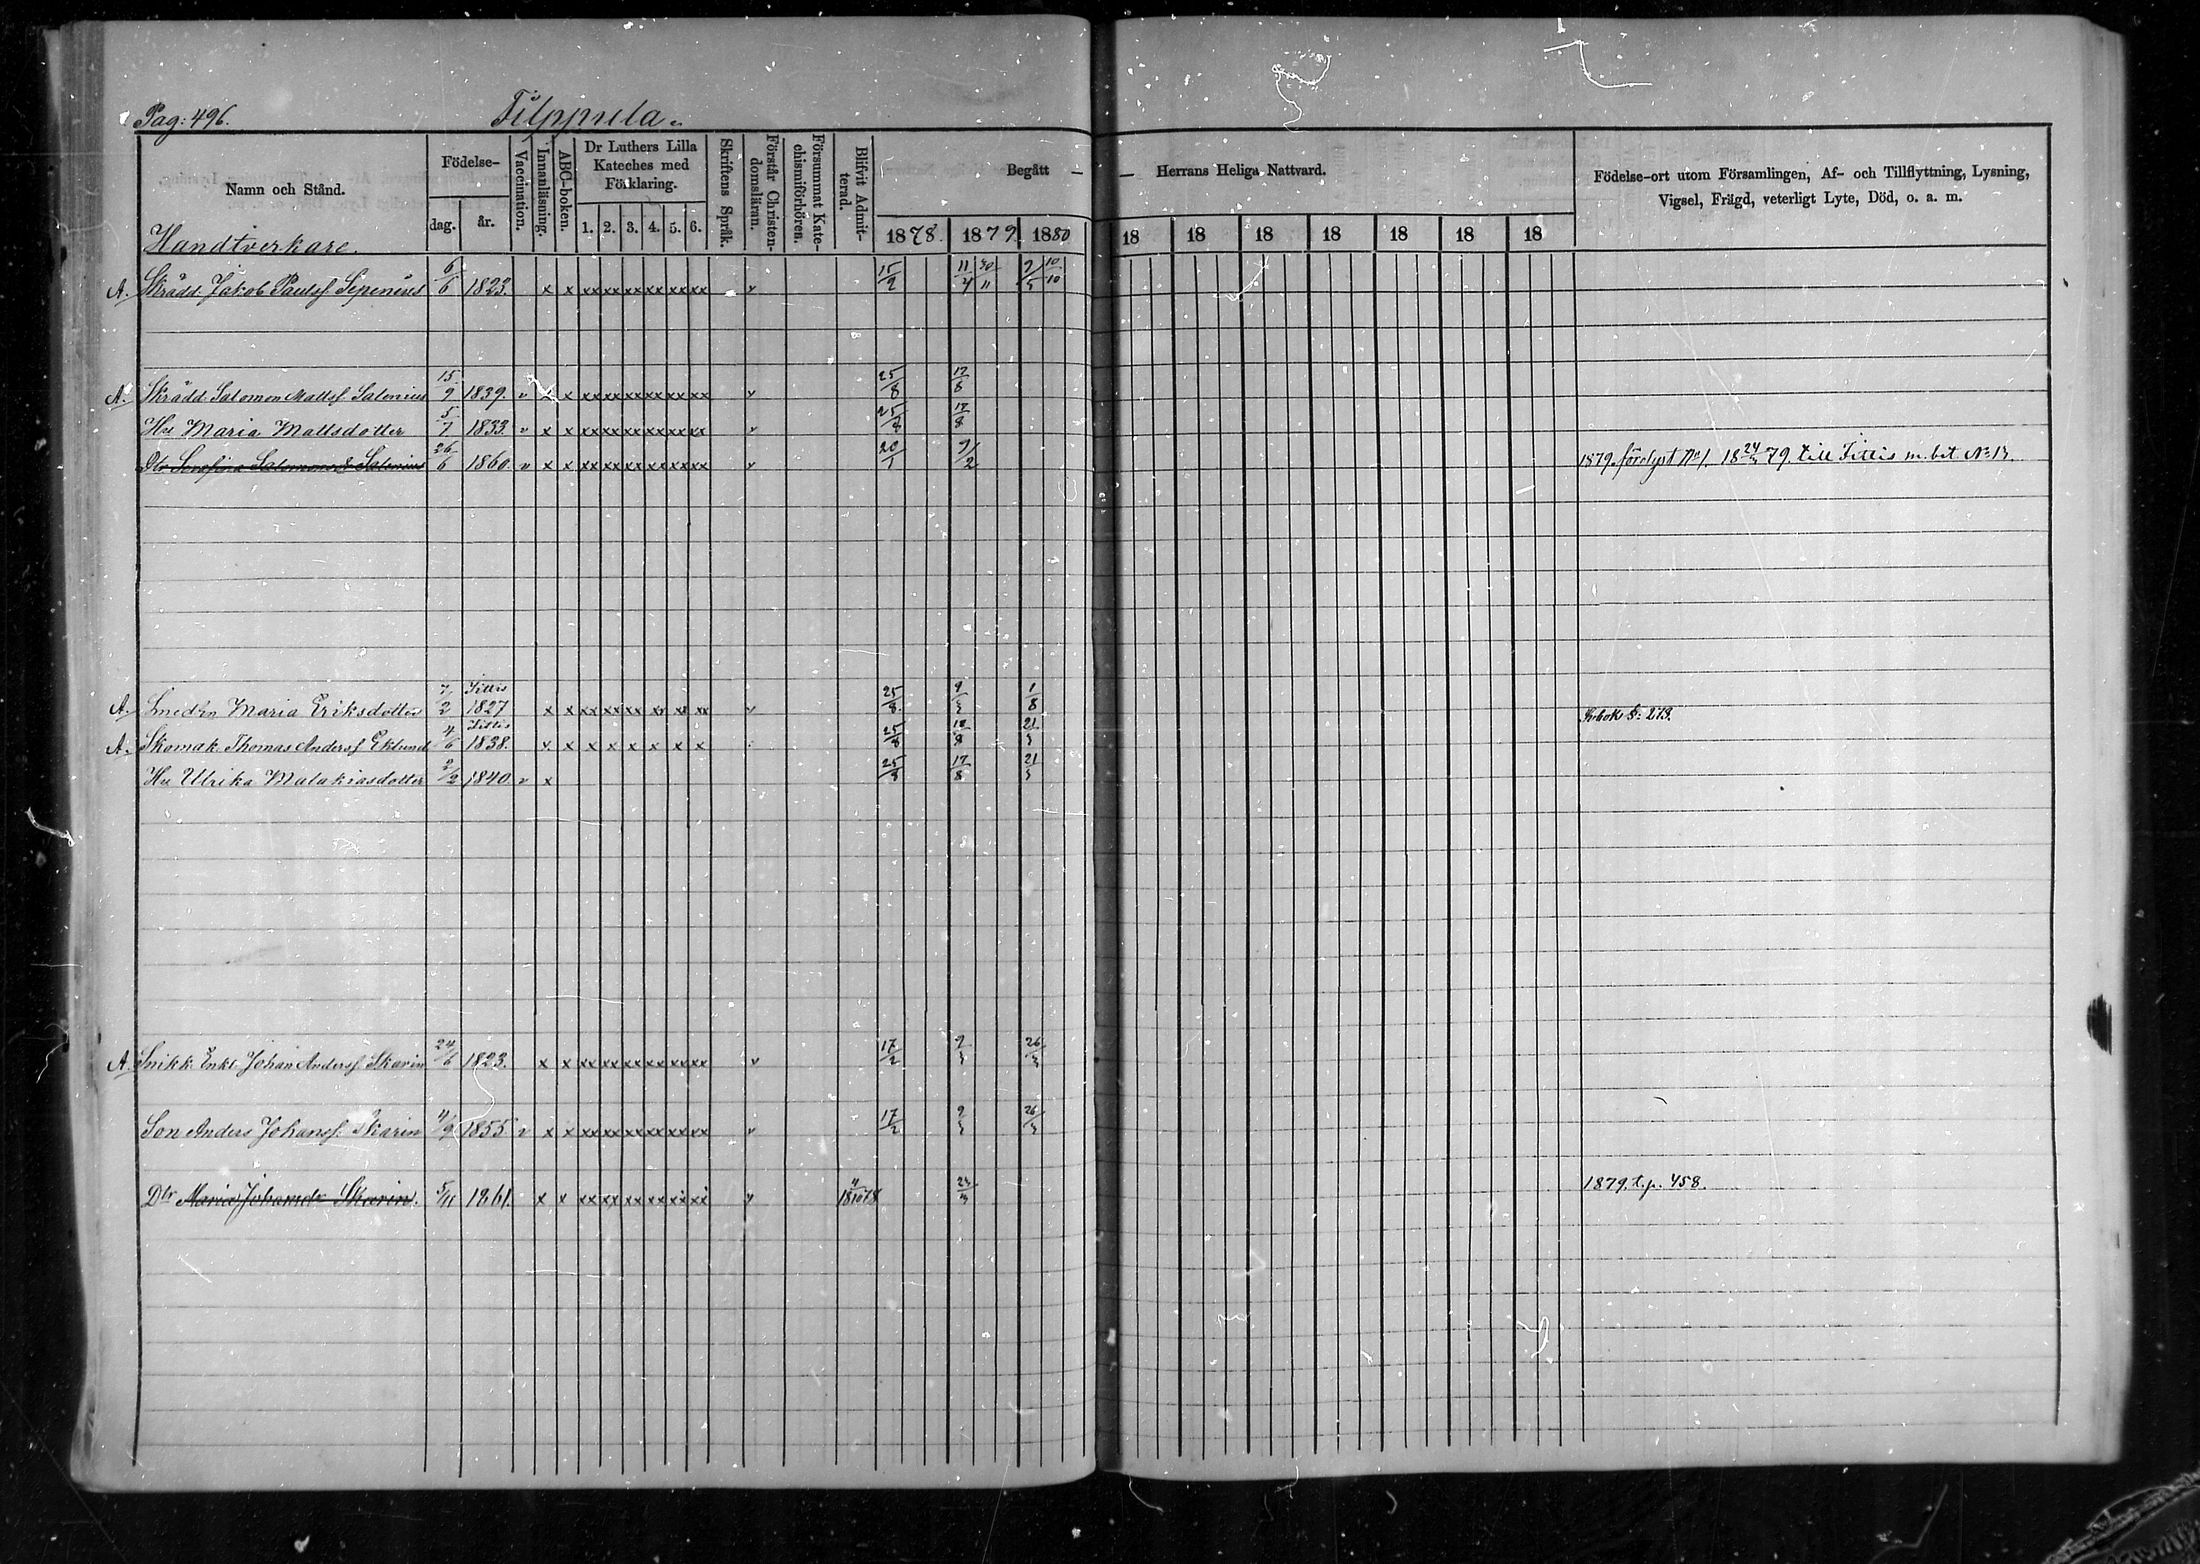 Pag: 496. Filppula.
Namn och Stånd. Födelse- dag. år. Vaccination. Innanläsning. ABC-boken. Dr Luthers Lilla Kateches med Förklaring. 1. 2. 3. 4. 5. 6. Skriftens Språk. Förstår Christendomsläran. Försummat Katechismiförhören. Blifvit Admitterad. Begått — — Herrans Heliga Nattvard. Födelse-ort utom Församlingen, Af- och Tillflyttning, Lysning, Vigsel, Frägd, veterligt Lyte, Död, o. a. m.
1878. 1879. 1880 18 18 18 18 18 18 18
Handtverkare.
A. Skrädd. Jakob Paulsf. Sipenius 6/6 1823. x x xx xx xx xx xx xx v 15/2 11/4 30/11 9/5 10/10
A. Skrädd. Salomon Mattsf Salenius 15/9 1839. v x x xx xx xx xx xx xx v 25/8 17/8
Hu Maria Mattsdotter 5/7 1833. v x x xx xx xx xx xx xx v 25/8 17/8
Dtr Serafina Salomonsd. Salenius 26/6 1860. v x x xx xx xx xx xx xx v 20/1 9/2 1879. förlyst No 1. 18 24/3 79. till Tittis m. bet. No 13.
A. Smed Maria Eriksdotter 7/2 Tittis 1827 x x xx xx xx xx xx xx v 25/8 9/3 1/8 S: 213.
A. Skomak. Thomas Andersf Eklund 4/6 Tittis 1838. x x x x x x x x 25/8 17/8 21/3
Hu Ulrika Malakiasdotter 2/2 1840. v x 25/8 17/8 21/3
A. Snikk. Enkl. Johan Andersf. Skarin 24/6 1823. x x xx xx xx xx xx xx v 17/2 9/3 26/3
Son Anders Johansf. Skarin 4/9 1855. v x x xx xx xx xx xx xx v 17/2 9/3 26/3
Dtr Maria Johansdr Skarin. 5/11 1861. x x xx xx xx xx xx xx v 18 10 78 23/3 1879. t. p. 458.